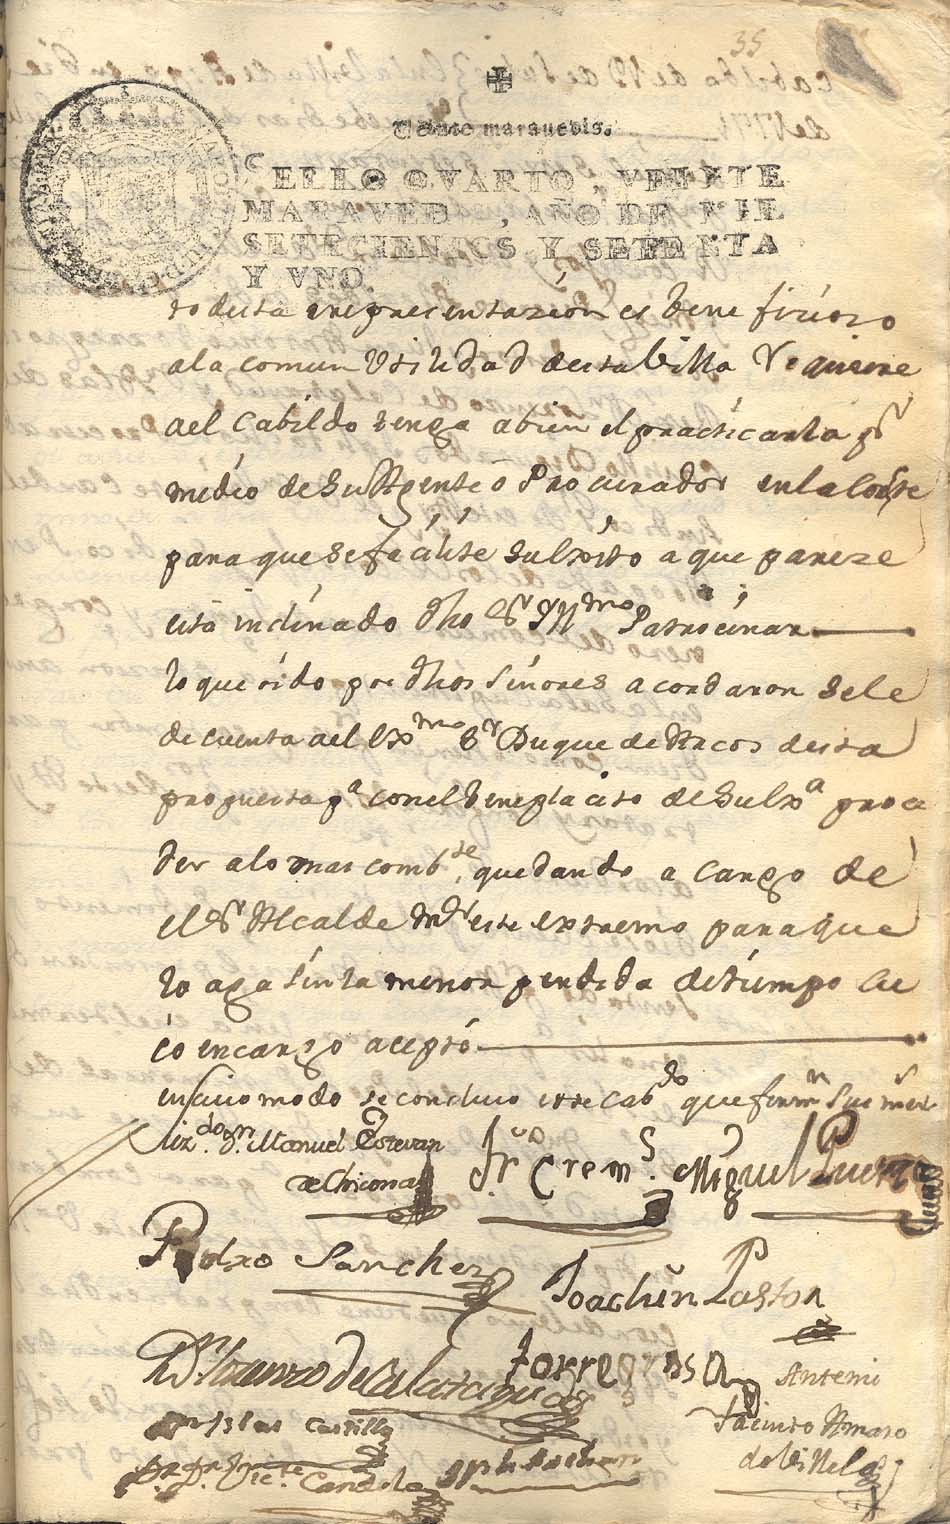 35
Veinte maravedis.
SELLO QVARTO, VEINTE
MARAVEDIS, AÑO DE MIL
SETECIENTOS Y SETENTA
Y VNO.
to desta representazion es venefizioso
a la comun Utilidad desta Villa Requiere
a el Cabildo tenga a bien el practicarla pr
medio de su Agente o Procurador en la Corte
para que se facilite su exsito a que pareze
está inclinado dho Sr Yllmo Patrocinar
lo que oido por dhos Señores acordaron se le
de cuenta a el Exmo Sr Duque de Arcos desta
propuesta pa con el veneplacito de su Exa proce
der a lo mas combte, quedando a cargo de
el Sr Alcalde Mor este extremo para que
lo aga sin la menor perdida de tiempo cu
io encargo aceptó
en cuio modo se concluio este Cabdo que firmn Sus merds
Lizdo Dn Manuel Estevan
de Chicona
Frco Crems
Miguel Puerta
Pedro Sanchez
Joachin Pastor
Dn Lorenzo de Calatayud
torregrosa
Blas Castillo
Victe Candela
Antemi
Jacinto Amaro
de Villela